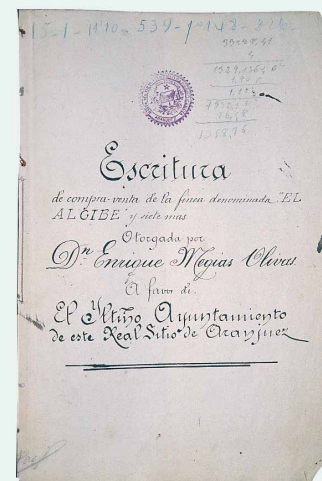 Escritura
de compra-venta de la finca denominada "EL
ALGIBE" y siete mas
Otorgada por
Dn. Enrique Megias Olivas.
A favor de:
El Yltmo Ayuntamiento
de este Real Sitio de Aranjuez